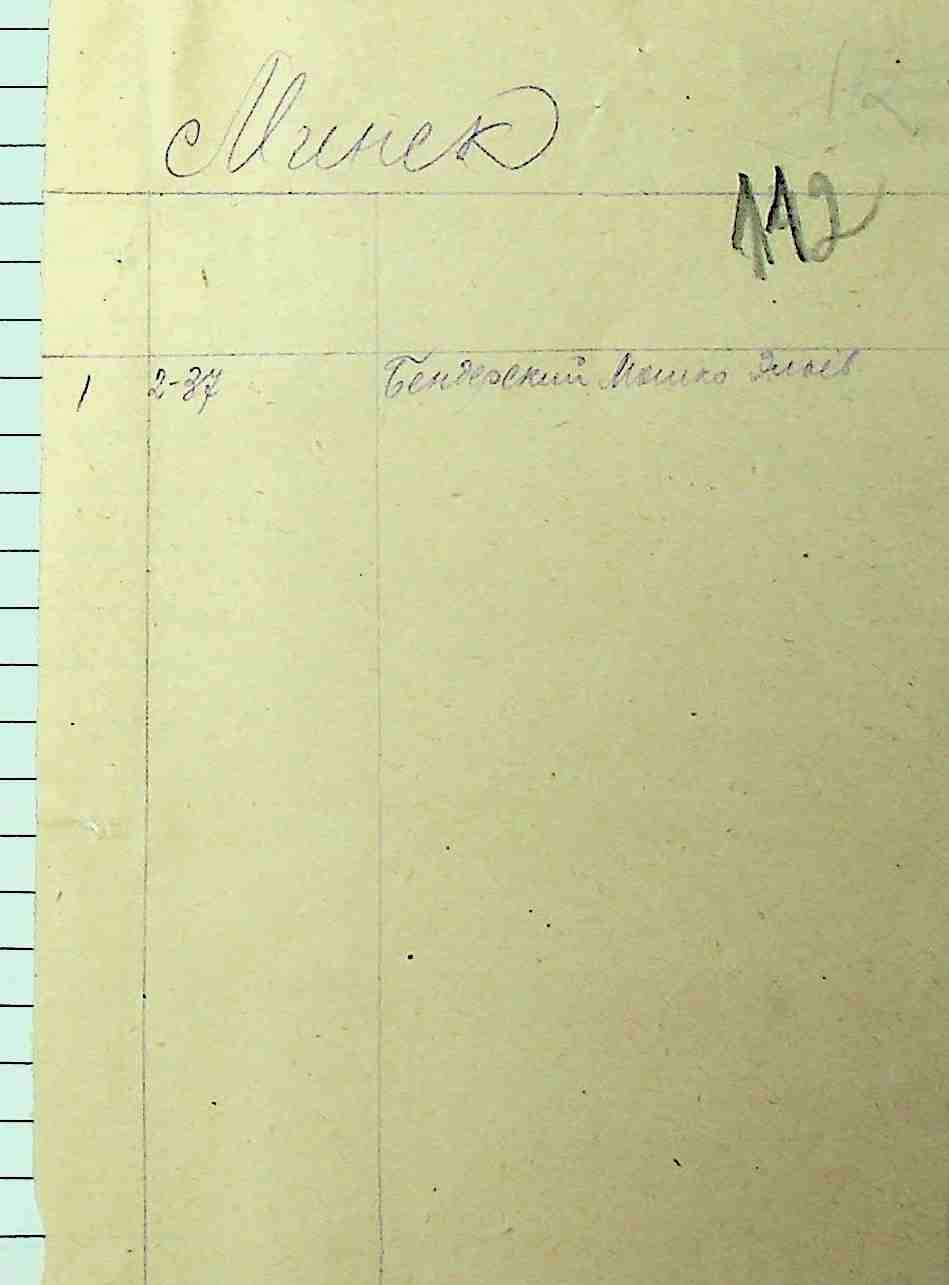 Минск
112
1 2-37 Бендерский Мошко